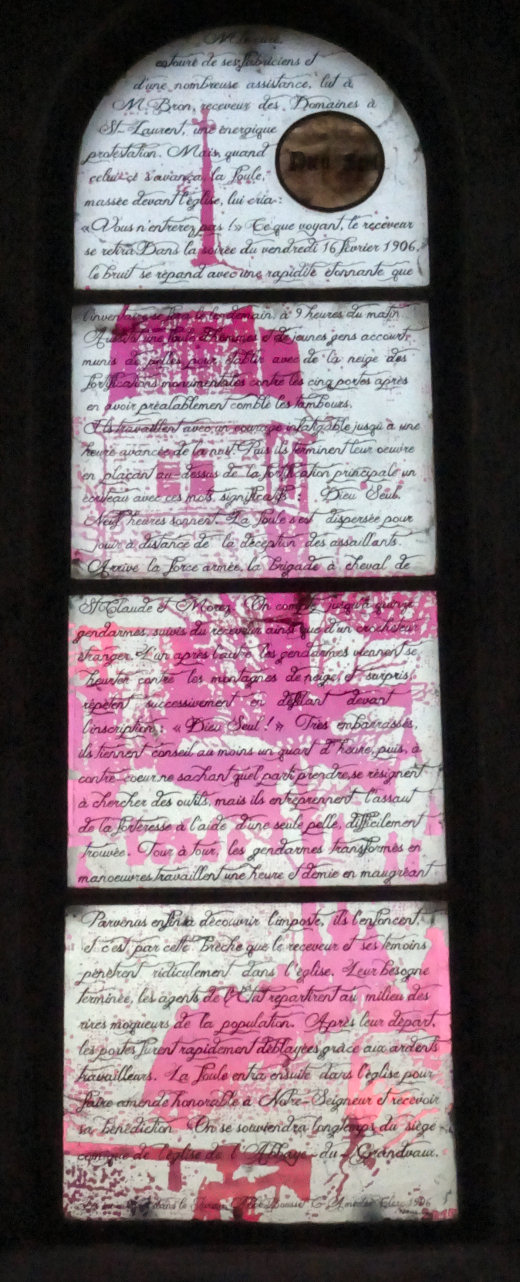 entouré de ses fabriciens et
d'une nombreuse assistance, lut à
M. Bron, receveur des Domaines à
St-Laurent, une énergique
protestation. Mais quand
celui-ci s'avança, la foule,
massée devant l'église, lui cria :
Dieu Seul
«Vous n'entrerez pas !» Ce que voyant, le receveur
se retira. Dans la soirée du vendredi 16 février 1906,
le bruit se répand avec une rapidité étonnante que
l'inventaire se fera le lendemain, à 9 heures du matin.
Aussitôt une foule d'hommes et de jeunes gens accourt,
munis de pelles pour établir avec de la neige des
fortifications monumentales contre les cinq portes après
en avoir préalablement comblé les tambours.
Ils travaillent avec un courage infatigable jusqu'à une
heure avancée de la nuit. Puis ils terminent leur oeuvre
en plaçant au-dessus de la fortification principale un
écriteau avec ces mots significatifs : Dieu Seul.
Neuf heures sonnent. La foule s'est dispersée pour
jouir à distance de la déception des assaillants.
Arrive la force armée, la brigade à cheval de
St-Claude et Morez. On compte jusqu'à quinze
gendarmes, suivis du receveur ainsi que d'un crocheteur
étranger. L'un après l'autre les gendarmes viennent se
heurter contre les montagnes de neige, et surpris,
répètent successivement en défilant devant
l'inscription, «Dieu Seul !» Très embarrassés,
ils tiennent conseil au moins un quart d'heure, puis, à
contre-coeur, ne sachant quel parti prendre, se résignent
à chercher des outils, mais ils entreprennent l'assaut
de la forteresse à l'aide d'une seule pelle, difficilement
trouvée. Tour à tour, les gendarmes transformés en
manoeuvres travaillent une heure et demie en maugréant
Parvenus enfin à découvrir l'imposte, ils l'enfoncent,
et c'est par cette brèche que le receveur et ses témoins
pénètrent ridiculement dans l'église. Leur besogne
terminée, les agents de l'Etat repartirent au milieu des
rires moqueurs de la population. Après leur départ,
les portes furent rapidement déblayées grâce aux ardents
travailleurs. La foule entra ensuite dans l'église pour
faire amende honorable à Notre-Seigneur et recevoir
sa bénédiction. On se souviendra longtemps du siège
comique de l'église de l'Abbaye-du-Grandvaux.
dans le 1906